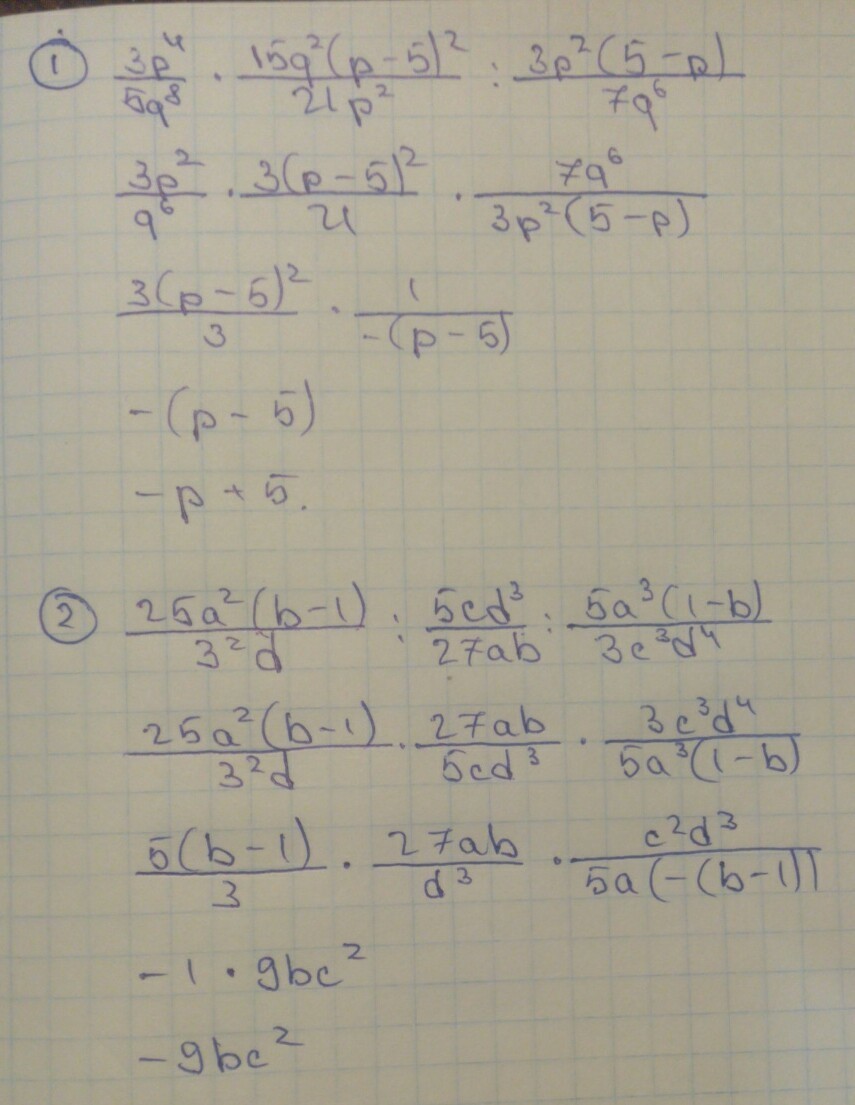 ① 3p⁴/5q⁸ · 15q²(p-5)²/21p² : 3p²(5-p)/7q⁶
3p²/q⁶ · 3(p-5)²/21 · 7q⁶/3p²(5-p)
3(p-5)²/3 · 1/-(p-5)
-(p-5)
-p+5.
② 25a²(b-1)/3²d : 5cd³/27ab : 5a³(1-b)/3c³d⁴
25a²(b-1)/3²d · 27ab/5cd³ · 3c³d⁴/5a³(1-b)
5(b-1)/3 · 27ab/d³ · c²d³/5a(-(b-1))
-1 · 9bc²
-9bc²